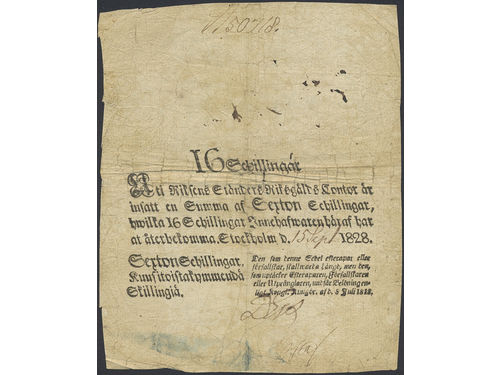 50718.
16 Schillingar
Uti Riksens Ständers Riksgälds Contor är
insatt en Summa af Sexton Schillingar,
hwilka 16 Schillingar Innehafwaren häraf har
at återbekomma. Stockholm d. 15 Sept 1828.
Sexton Schillingar.
Kuusitoistakymmendä
Skillingiä.
Den som denne Sedel efterapar eller
förfalskar, skall warda hängd, men den,
som uptäcker Efteraparen, Förfalskaren
eller Utprånglaren, undfår Belöning en-
ligt Kongl. Kungör. af d. 8 Juli 1818.